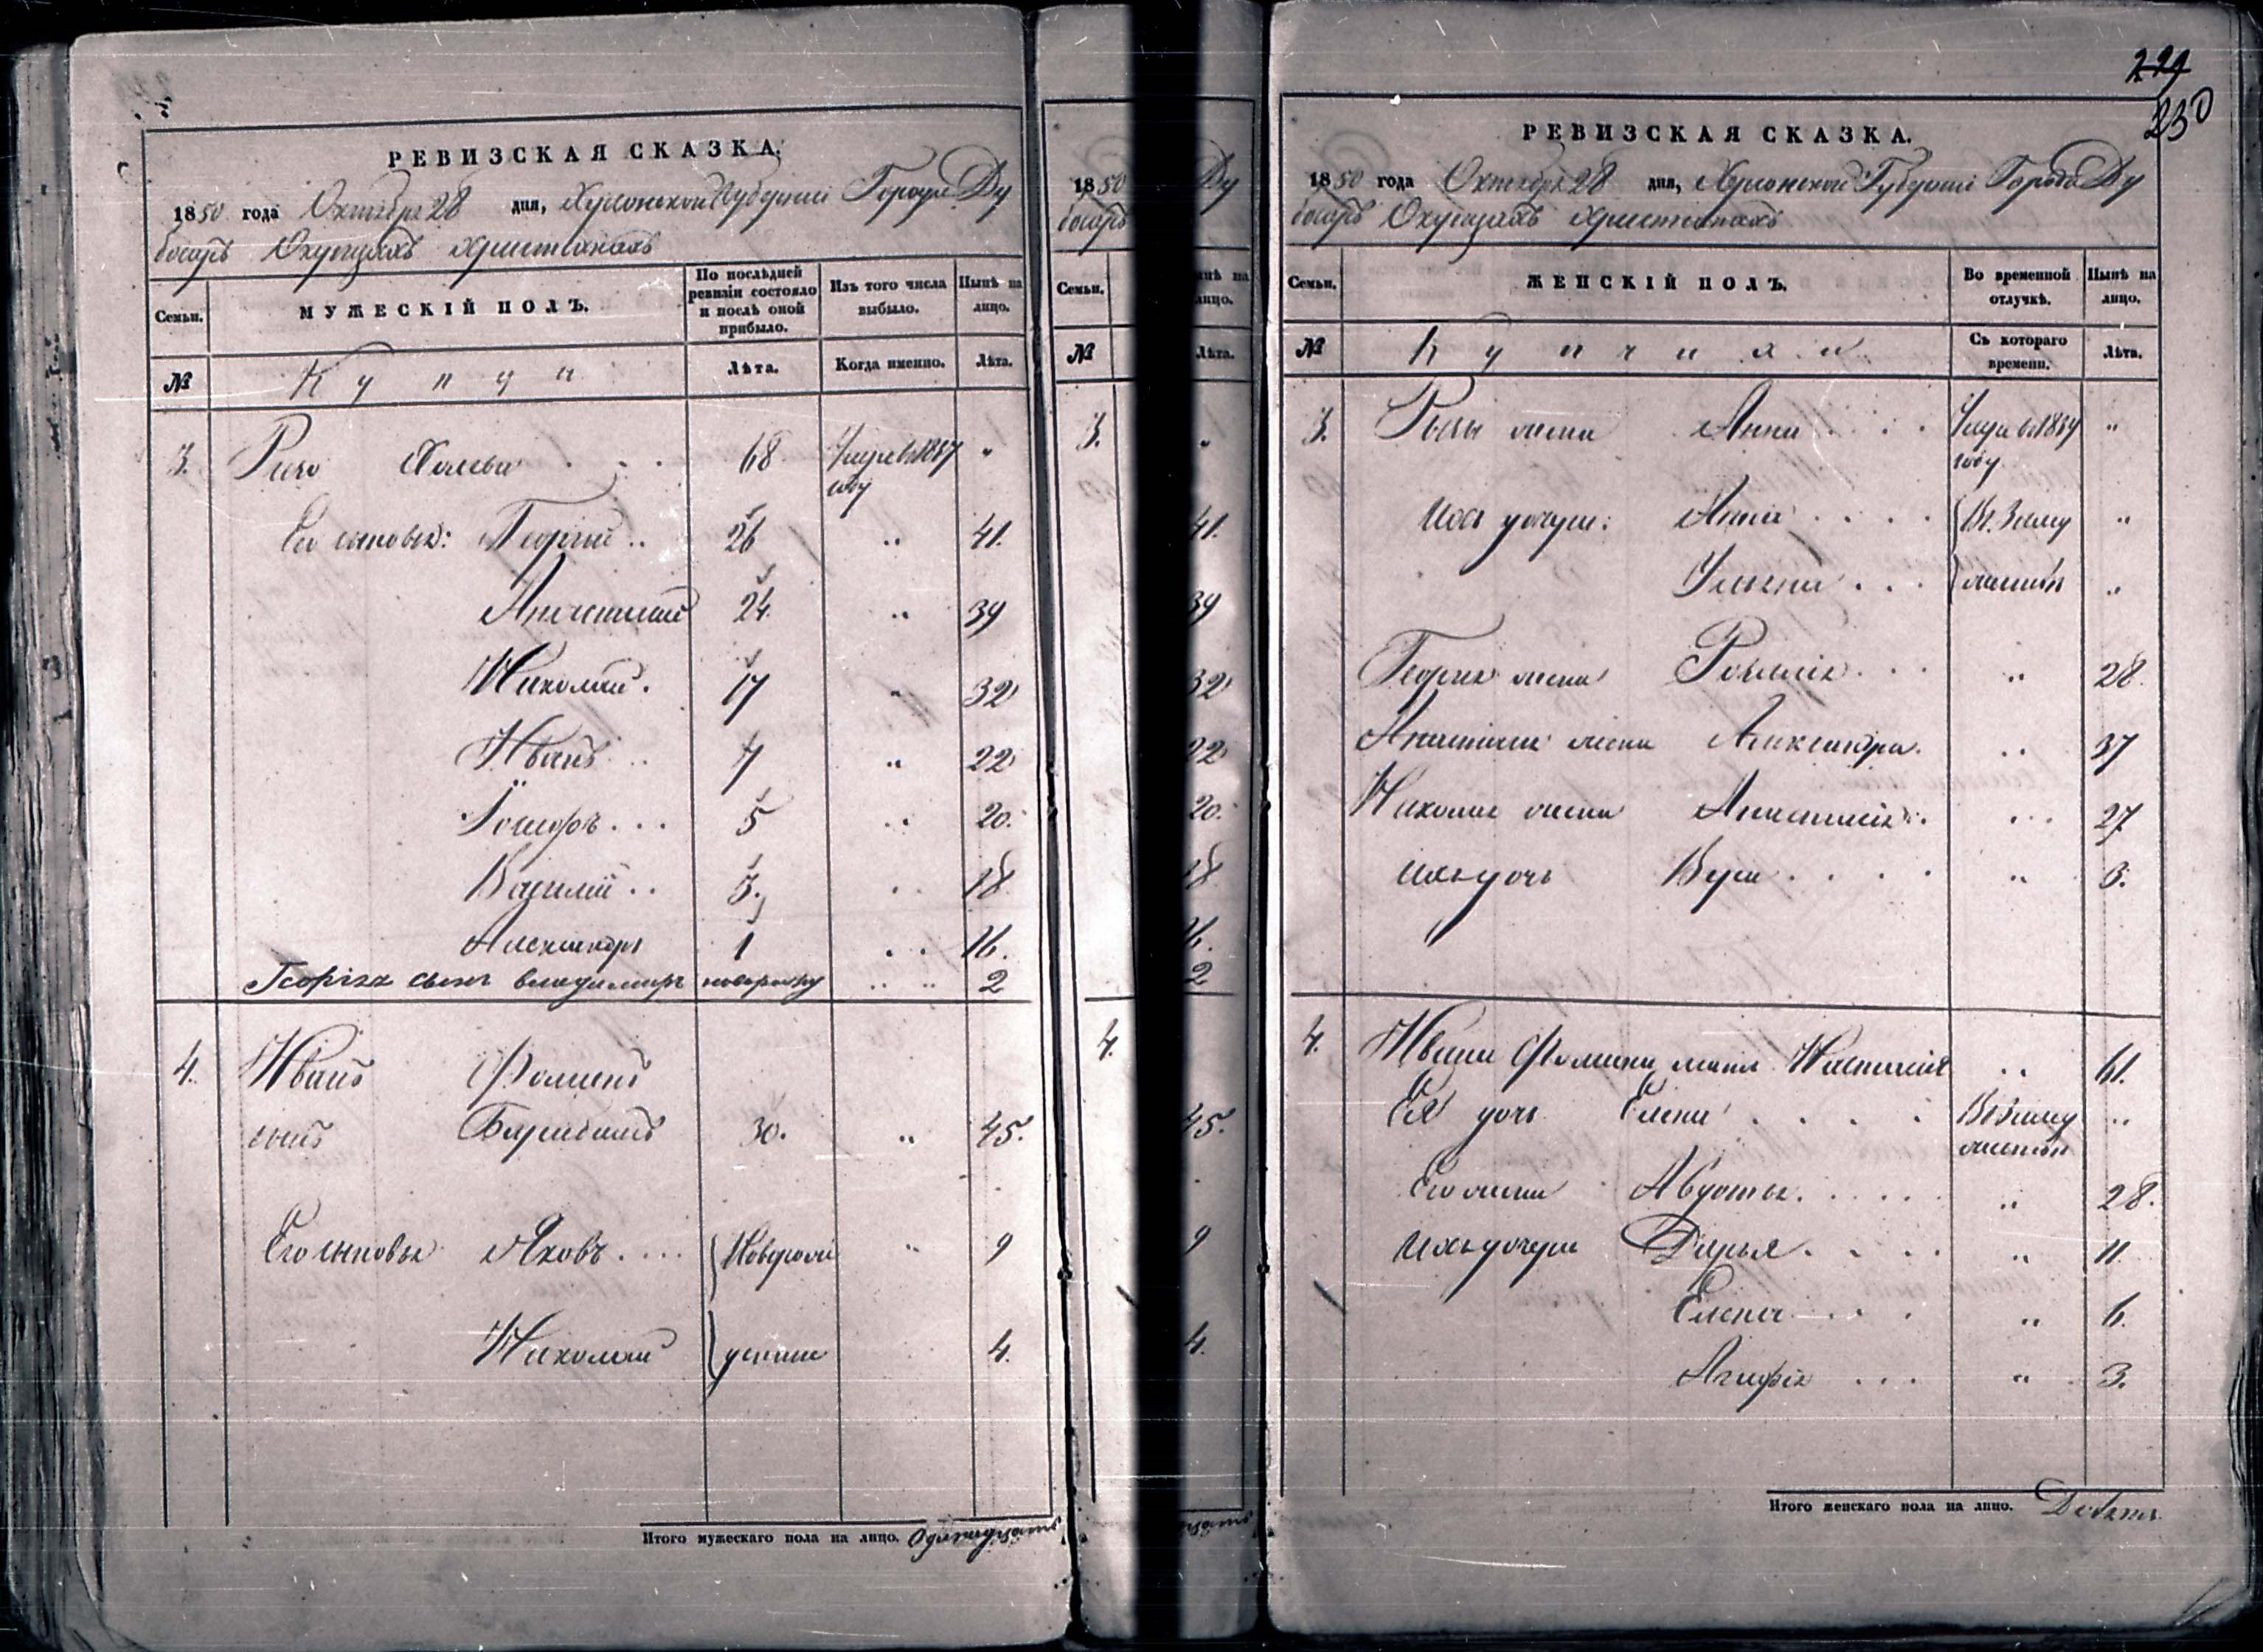 РЕВИЗСКАЯ СКАЗКА.
1850 года Октября 28 дня, Херсонской Губернии Города Ду
босаръ Окупцахъ христіанахъ
Семьи.
МУЖЕСКІЙ ПОЛЪ.
По послѣдней ревизіи состояло и послѣ оной прибыло.
Изъ того числа выбыло.
Нынѣ на лицо.
№
Купцы
Лѣта.
Когда именно.
Лѣта.
3. 68 году "
Его сыновья: Георгій .. 26 " 41.
Анастасій 24. " 39
Николай. 17 " 32
Иванъ .. 7 " 22
Іосифъ ... 5 " 20.
Василій .. 3. " 18
Александръ 1 " 16.
Георгія сынъ владимиръ новорожд " 2
4. Иванъ Фоминъ
сынъ 30. " 45.
Его сыновья Яковъ .... Новорож " 9
Николай денные 4.
Итого мужескаго пола на лицо. Одинадцать
1850 Ду
босаръ
Семьи. нынѣ на лицо.
№ Лѣта.
3. "
41.
39
32
22
20.
18
16.
2
4.
45.
9
4.
229
230
РЕВИЗСКАЯ СКАЗКА.
1850 года Октября 28 дня, Херсонской Губерніи Города Ду
босаръ Окупцахъ христіанахъ
Семьи.
ЖЕНСКІЙ ПОЛЪ.
Во временной отлучкѣ.
Нынѣ на лицо.
№
Купчихи
Съ котораго времени.
Лѣта.
3. жена Анна году "
Ихъ дочери: Въ Заму "
жествѣ "
Георгія жена " 28.
Анастасія жена Александра. " 37
Николая жена Анастасія. ... 27.
Ихъ дочь Вера .... " 3.
4. Ивана Фомина жена Настасія .. 61.
Ея дочь Елена .... Въ Заму
жествѣ "
Его жена Авдотья. .... " 28.
Ихъ дочери Дарья. .... " 11.
Елена .... " 6.
Агафія ... " 3.
Итого женскаго пола на лицо. Девять